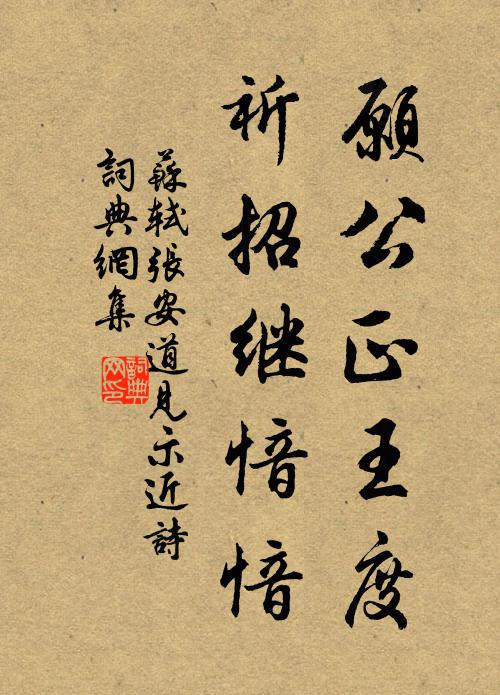 願公正王度
祈招继愔愔
蘇軾張安道見示近詩
詞典網集
詞典网印